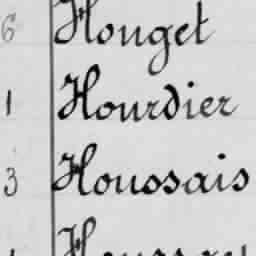 6 Houget
1 Hourdier
3 Houssais